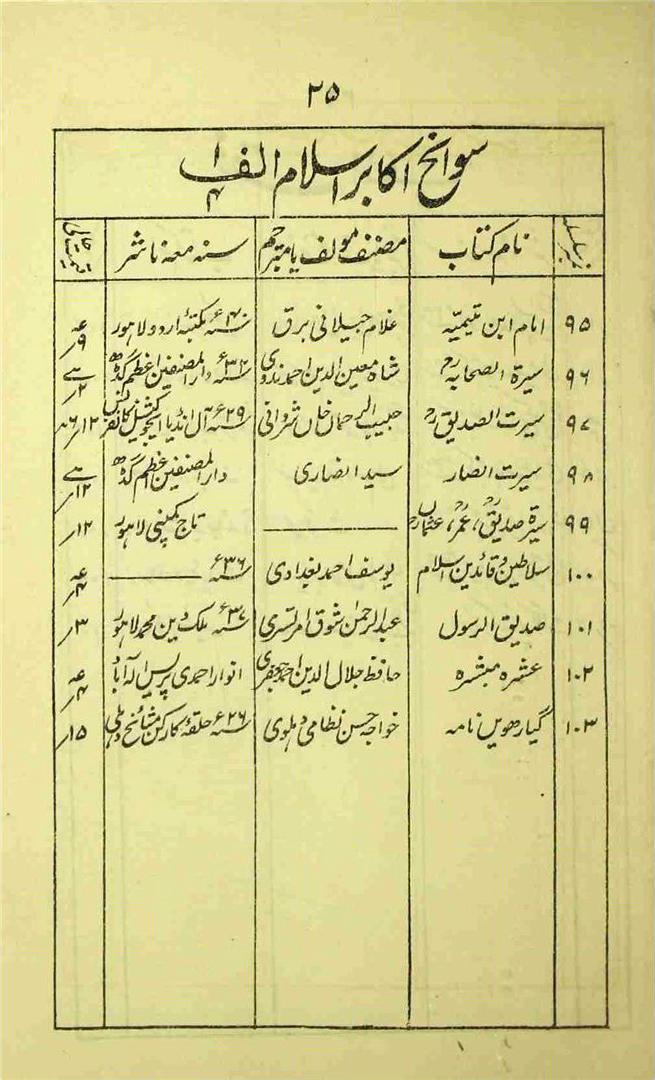 ۲۵
سوانح اکابر اسلام الف ۱/۴
نمبر سلسلہ نام کتاب مصنف مولف یا مترجم سنہ معہ ناشر قیمت
۹۵ امام ابن تیمیّہ غلام جیلانی برق سنہ ۴۰ء مکتبہ اردو لاہور
۹۶ سیرۃ الصحابہؓ شاہ معین الدین احمد ندوی سنہ ۳۲ء دار المصنفین اعظم گڈھ
۹۷ سیرت الصدیقؓ حبیب الرحمان خاں شروانی سنہ ۲۹ء آل انڈیا ایجوکیشنل کانفرنس
۹۸ سیرت انصار سید انصاری دار المصنفین اعظم گڈھ
۹۹ سیرۃ صدیقؓ، عمرؓ، عثمانؓ ——— تاج کمپنی لاہور ۱۲؍
۱۰۰ سلاطین و قائدین اسلام یوسف احمد بغدادی سنہ ۳۶ء ———
۱۰۱ صدیق الرسول عبدالرحمٰن شوق امرتسری سنہ ۳۷ء ملک دین محمد لاہور ۳؍
۱۰۲ عشرہ مبشرہ حافظ جلال الدین احمد جعفری انوار احمدی پریس الہ آباد
۱۰۳ گیارھویں نامہ خواجہ حسن نظامی دہلوی سنہ ۲۶ء حلقۂ کارکن مشائخ دہلی ۱۵؍